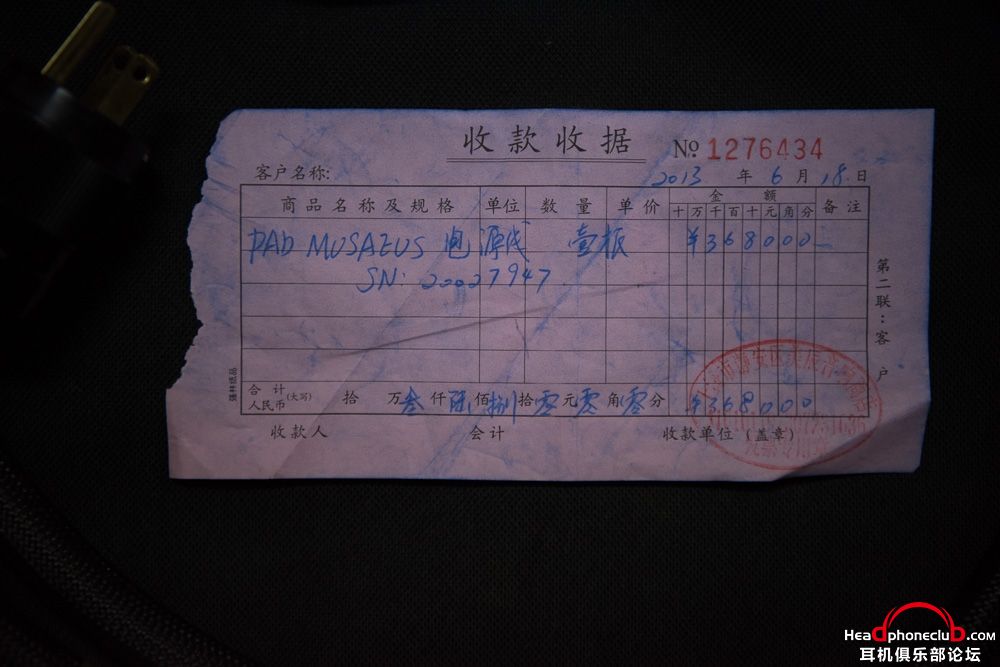 收款收据 № 1276434
客户名称: 2013 年 6 月 18 日
商品名称及规格 单位 数量 单价 金额 备注
十 万 千 百 十 元 角 分
PAD MUSAEUS 电源线 壹根 ¥368000
SN: 20027947
第二联:客户
强林纸品
合计人民币 (大写) 拾 万 叁 仟 陆 佰 捌 拾 零 元 零 角 零 分 ¥368000
收款人 会计 收款单位(盖章)
Headphoneclub.com
耳机俱乐部论坛